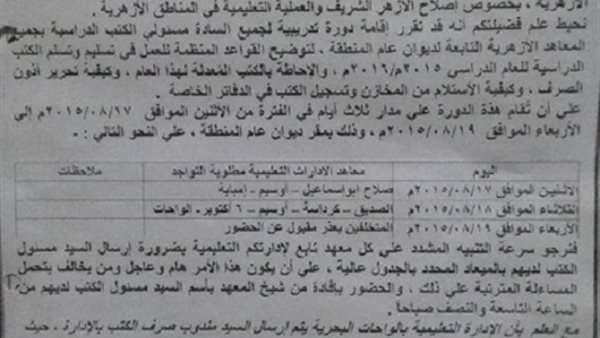 الأزهرية ، بخصوص إصلاح الأزهر الشريف والعملية التعليمية في المناطق الأزهرية .
نحيط علم فضيلتكم أنه قد تقرر إقامة دورة تدريبية لجميع السادة مسئولي الكتب الدراسية بجميع
المعاهد الأزهرية التابعة لديوان عام المنطقة ، لتوضيح القواعد المنظمة للعمل في تسليم وتسلم الكتب
الدراسية للعام الدراسي ٢٠١٥م/٢٠١٦م ، والإحاطة بالكتب المُعدلة لهذا العام ، وكيفية تحرير أذون
الصرف ، وكيفية الأستلام من المخازن وتسجيل الكتب في الدفاتر الخاصة .
علي أن تُقام هذة الدورة علي مدار ثلاث أيام في الفترة من الأثنين الموافق ٢٠١٥/٠٨/١٧م إلى
الأربعاء الموافق ٢٠١٥/٠٨/١٩م ، وذلك بمقر ديوان عام المنطقة ، علي النحو التالي : -
اليوم معاهد الادارات التعليمية مطلوبة التواجد ملاحظات
الأثنين الموافق ٢٠١٥/٠٨/١٧م صلاح ابواسماعيل – أوسيم – إمبابة
الثلاثاء الموافق ٢٠١٥/٠٨/١٨م الصديق – كرداسة – أوسيم – ٦ أكتوبر- الواحات
الأربعاء الموافق ٢٠١٥/٠٨/١٩م المتخلفين بعذر مقبول عن الحضور
فنرجو سرعة التنبيه المشدد علي كل معهد تابع لإدارتكم التعليمية بضرورة إرسال السيد مسئول
الكتب لديهم بالميعاد المحدد بالجدول عالية ، على أن يكون هذا الأمر هام وعاجل ومن يخالف يتحمل
المساءلة المترتبة علي ذلك ، والحضور بإفادة من شيخ المعهد بأسم السيد مسئول الكتب لديهم من
الساعة التاسعة والنصف صباحاً .
مع العلم بأن الإدارة التعليمية بالواحات البحرية يتم إرسال السيد مندوب صرف الكتب بالإدارة ، حيث